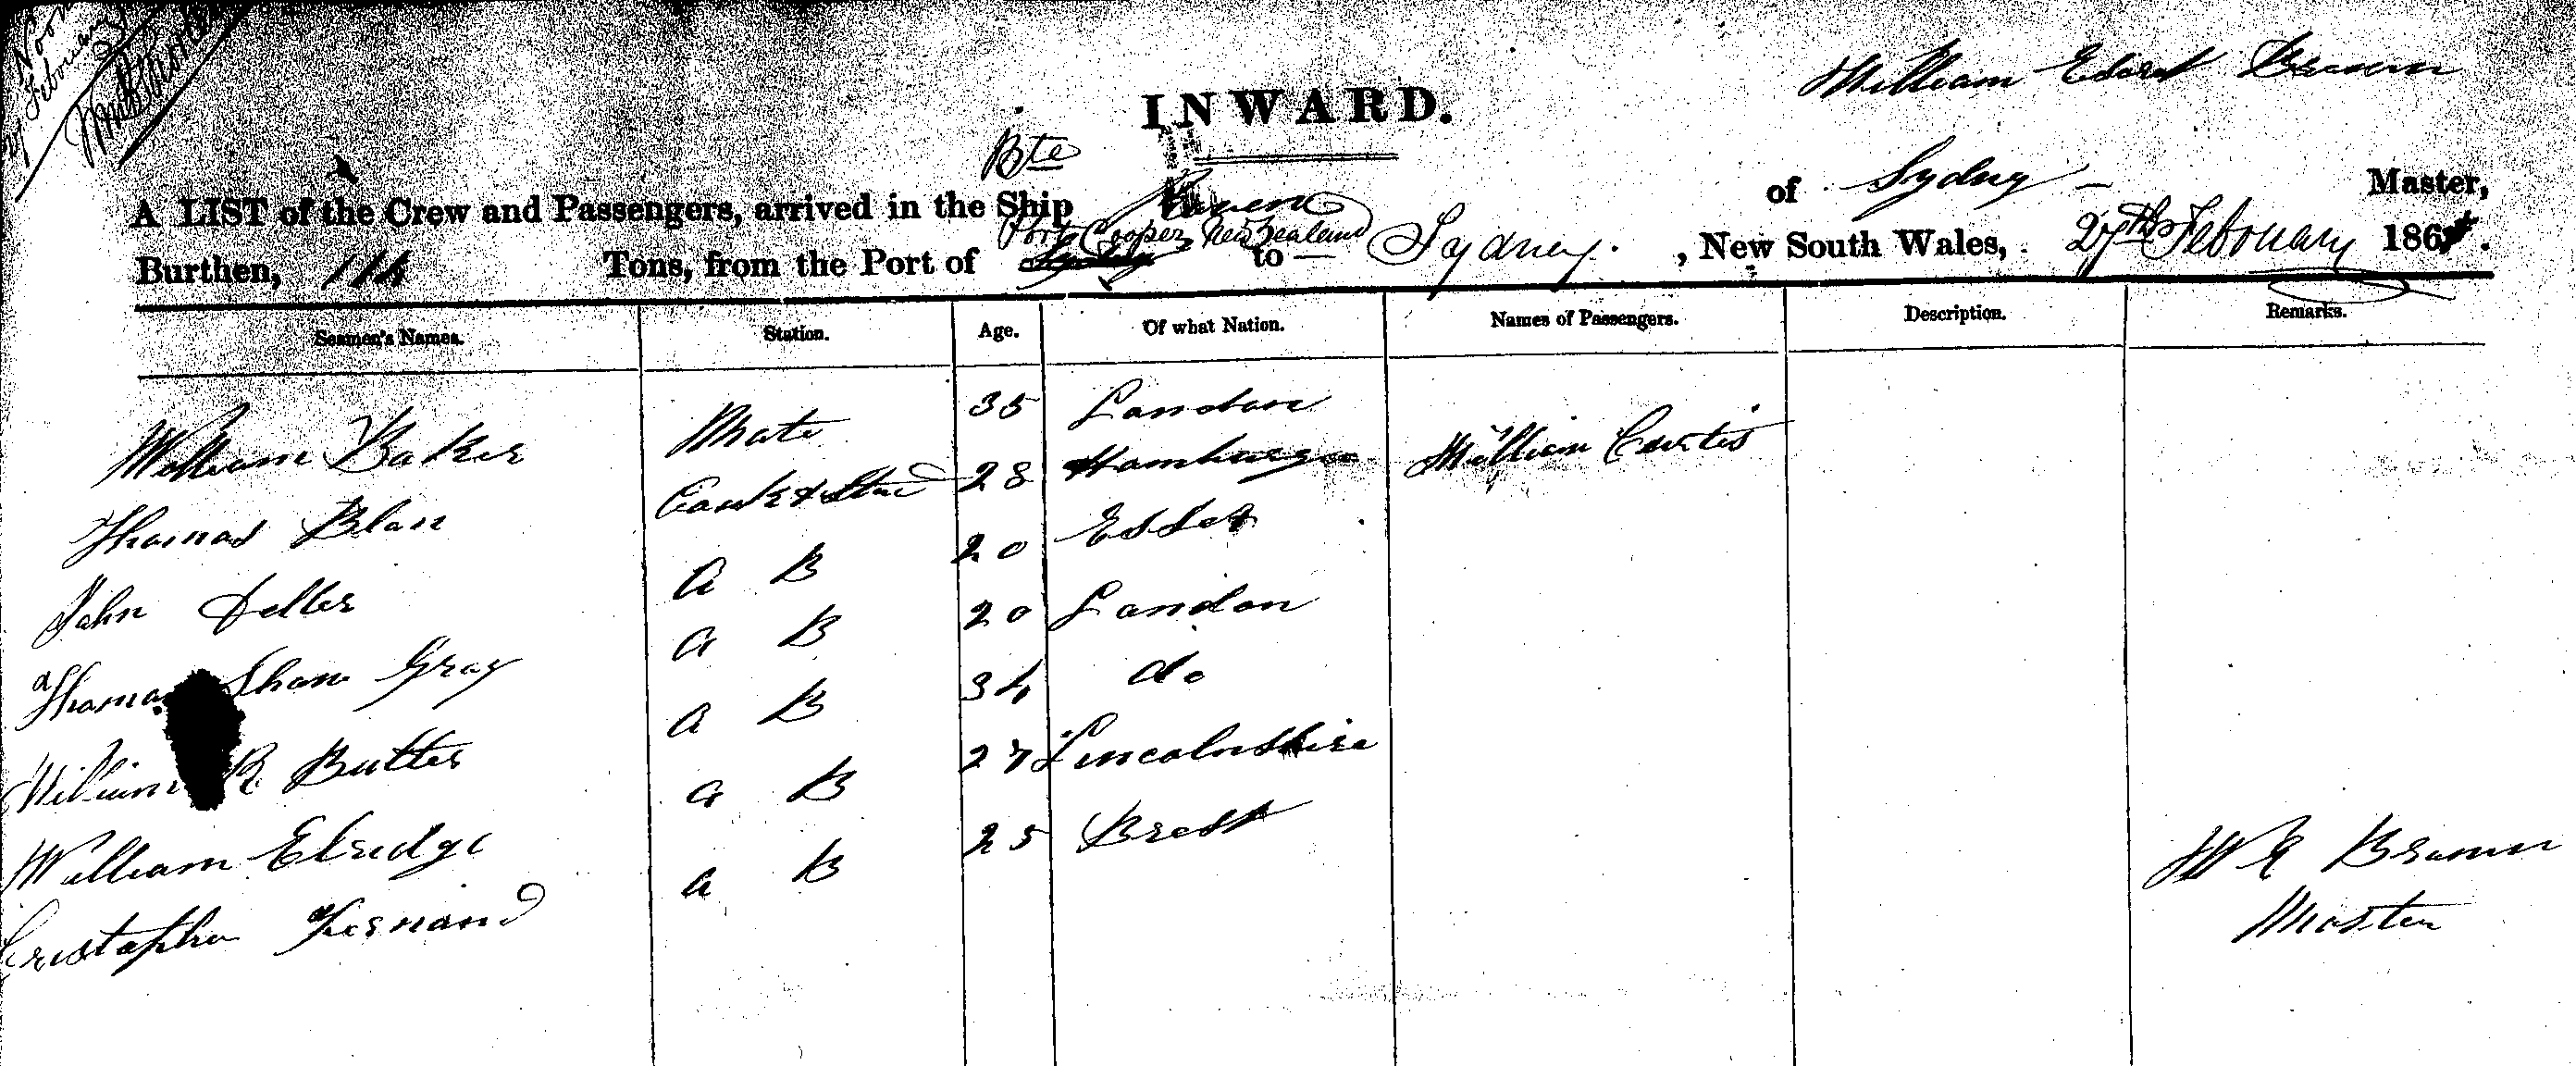 Noon
27 February
INWARD.
William Edard Brown
Bte
A LIST of the Crew and Passengers, arrived in the Ship of Sydney Master,
Port Cooper New Zealand
Burthen, 116 Tons, from the Port of to Sydney. , New South Wales, 27th Febouary 186
Seamen's Names. Station. Age. Of what Nation. Names of Passengers. Description. Remarks.
William Baker Mate 35 London William Curtis
Thomas Blan Cook & Stud 28 Hamburg
John Deller A B 20 Essex
Thomas Shaw Gray A B 20 London
William R Butter A B 34 do
William Elredge A B 27 Lincolnshire
Cristopher Fernand A B 25 Brest
W E Brown
Master